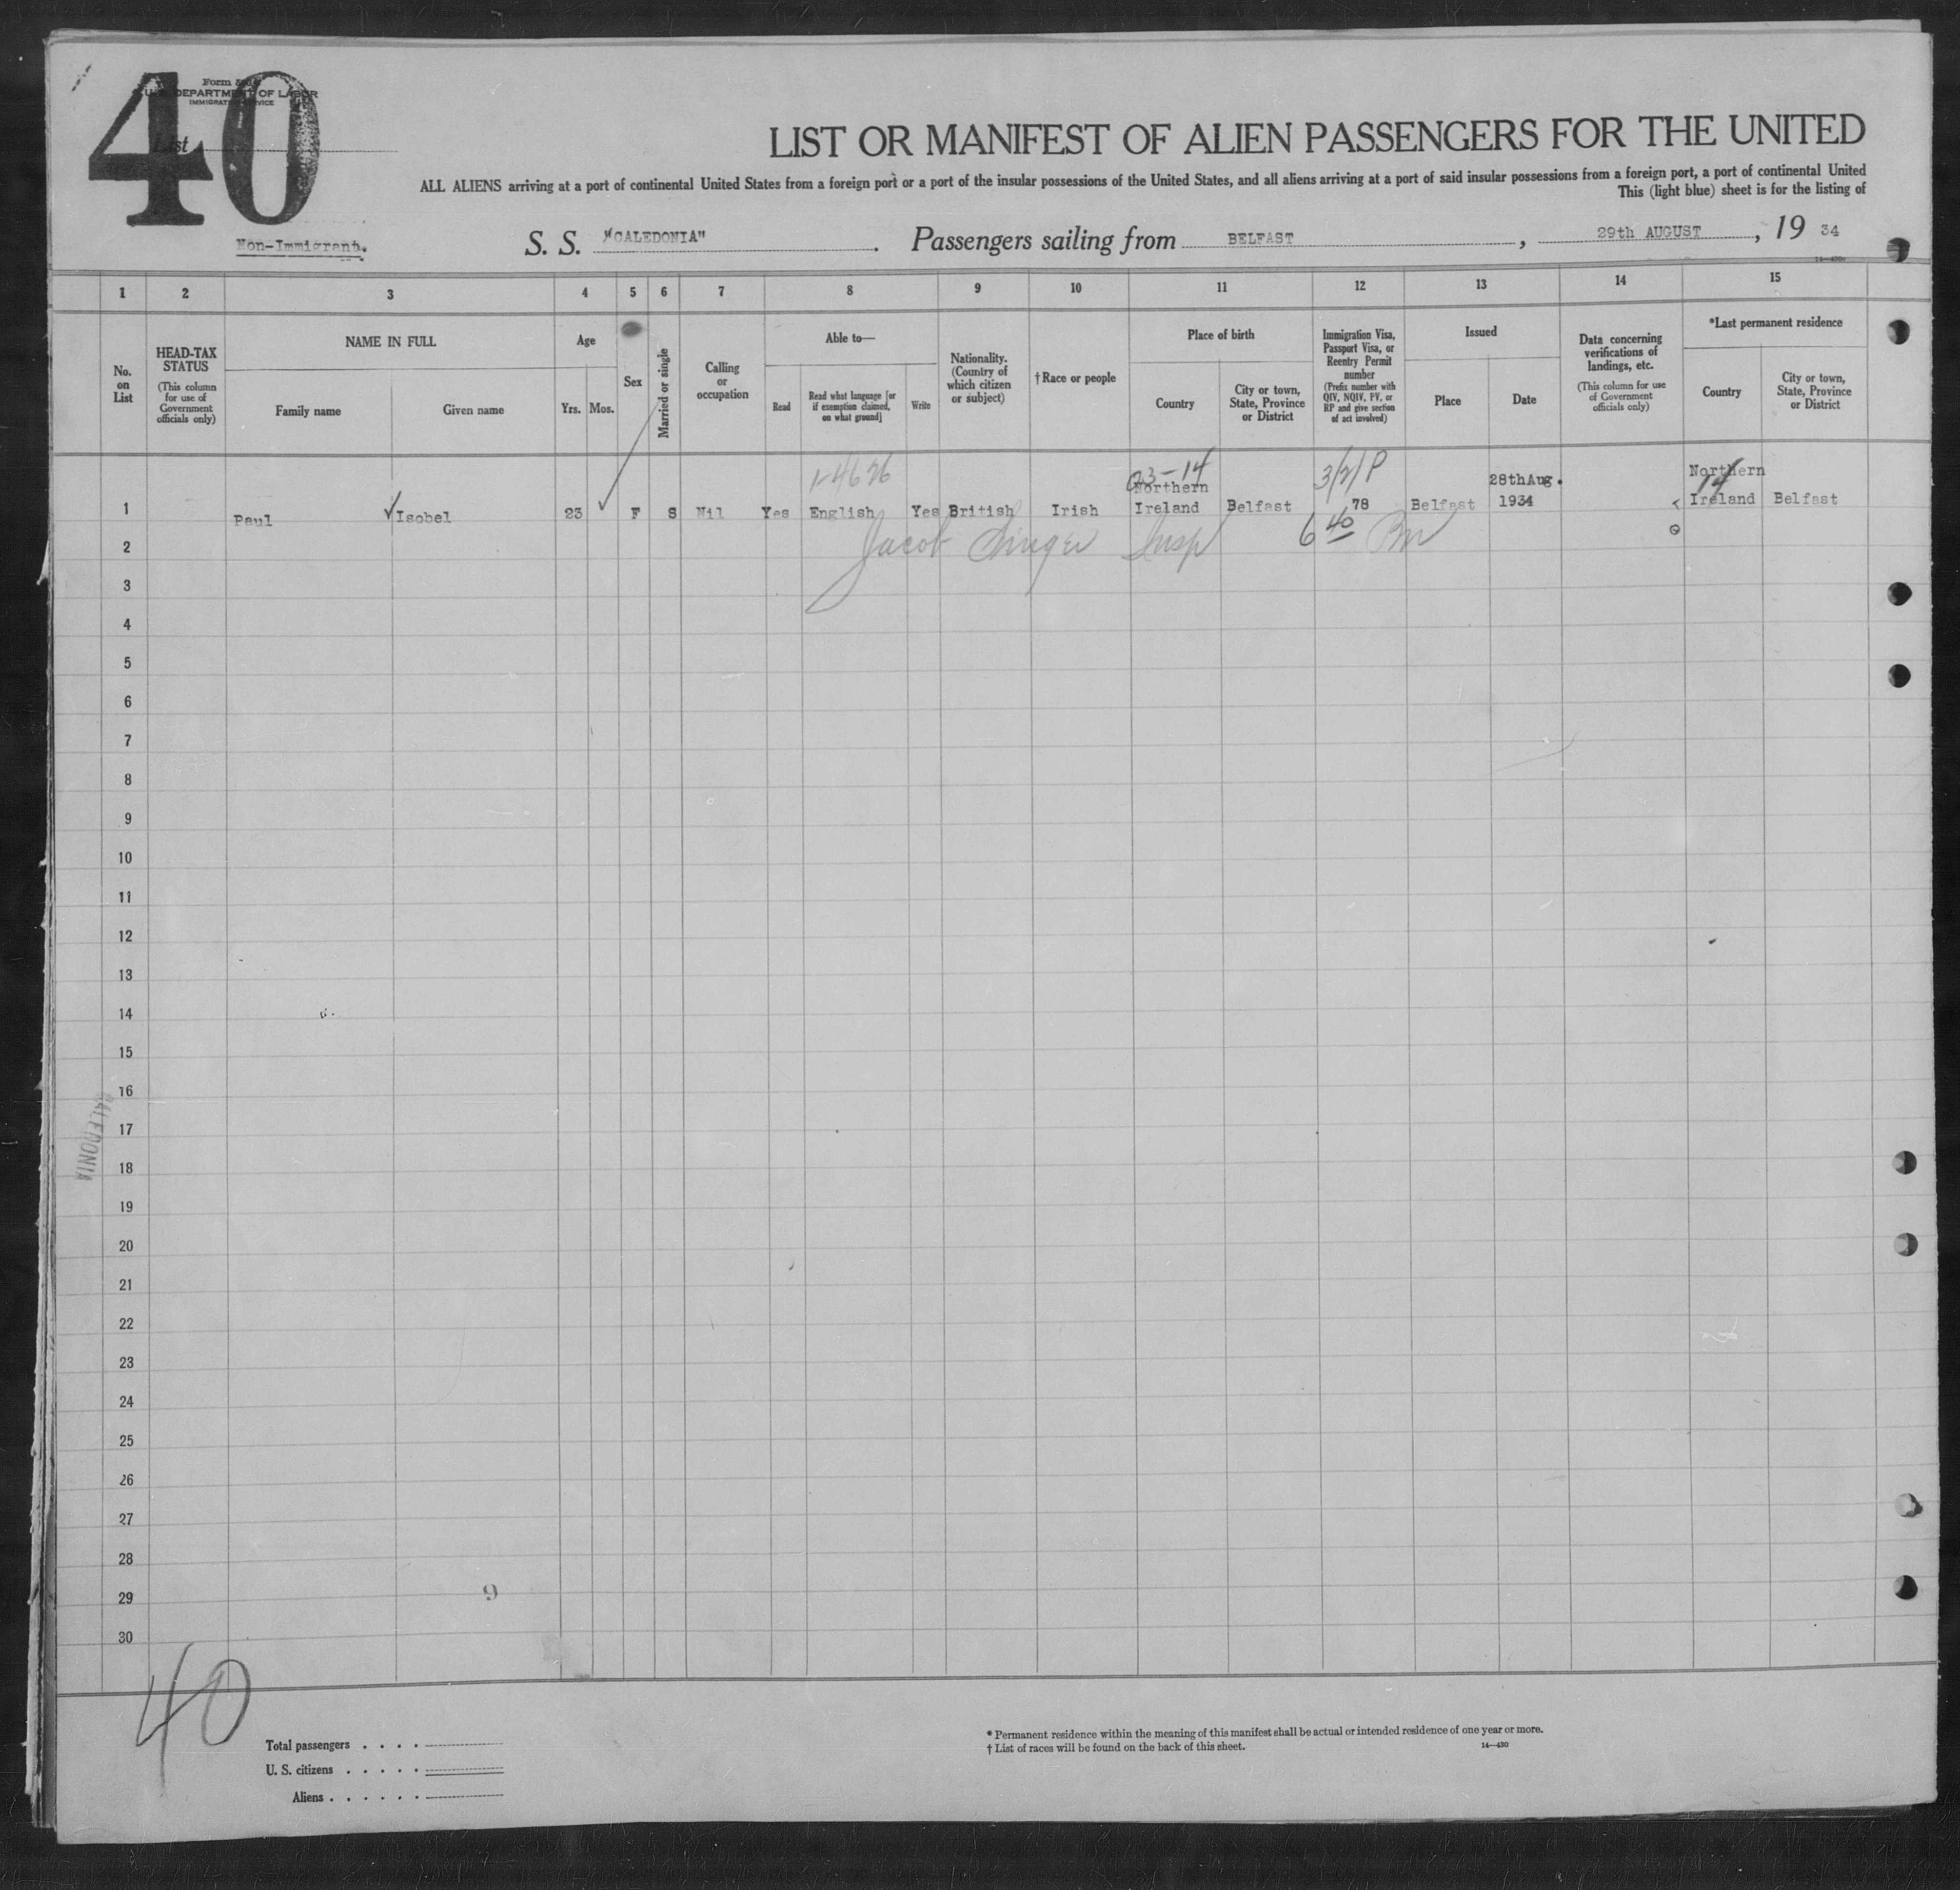 40
Form
U. S. DEPARTMENT OF LABOR
IMMIGRATION SERVICE
List
LIST OR MANIFEST OF ALIEN PASSENGERS FOR THE UNITED
ALL ALIENS arriving at a port of continental United States from a foreign port or a port of the insular possessions of the United States, and all aliens arriving at a port of said insular possessions from a foreign port, a port of continental United
This (light blue) sheet is for the listing of
Non-Immigrant.
S. S. "CALEDONIA". Passengers sailing from BELFAST, 29th AUGUST, 19 34
1 2 3 4 5 6 7 8 9 10 11 12 13 14 15
No. on List
HEAD-TAX STATUS
(This column for use of Government officials only)
NAME IN FULL
Family name
Given name
Age
Yrs. Mos.
Sex
Married or single
Calling or occupation
Able to—
Read
Read what language [or if exemption claimed, on what ground]
Write
Nationality. (Country of which citizen or subject)
†Race or people
Place of birth
Country
City or town, State, Province or District
Immigration Visa, Passport Visa, or Reentry Permit number
(Prefix number with QIV, NQIV, PV, or RP and give section of act involved)
Issued
Place
Date
Data concerning verifications of landings, etc.
(This column for use of Government officials only)
*Last permanent residence
Country
City or town, State, Province or District
1-4626 3/2/P 14
1 Paul Isobel 23 F S Nil Yes English Yes British Irish Northern Ireland Belfast 78 Belfast 28thAug. 1934 Northern Ireland Belfast
Jacob Singer Insp 6 40 PM
2
3
4
5
6
7
8
9
10
11
12
13
14
15
16
17
18
19
20
21
22
23
24
25
26
27
28
29
30
CALEDONIA
9
40
Total passengers . . . .
U. S. citizens . . . . .
Aliens . . . . . .
* Permanent residence within the meaning of this manifest shall be actual or intended residence of one year or more.
† List of races will be found on the back of this sheet.
14—430